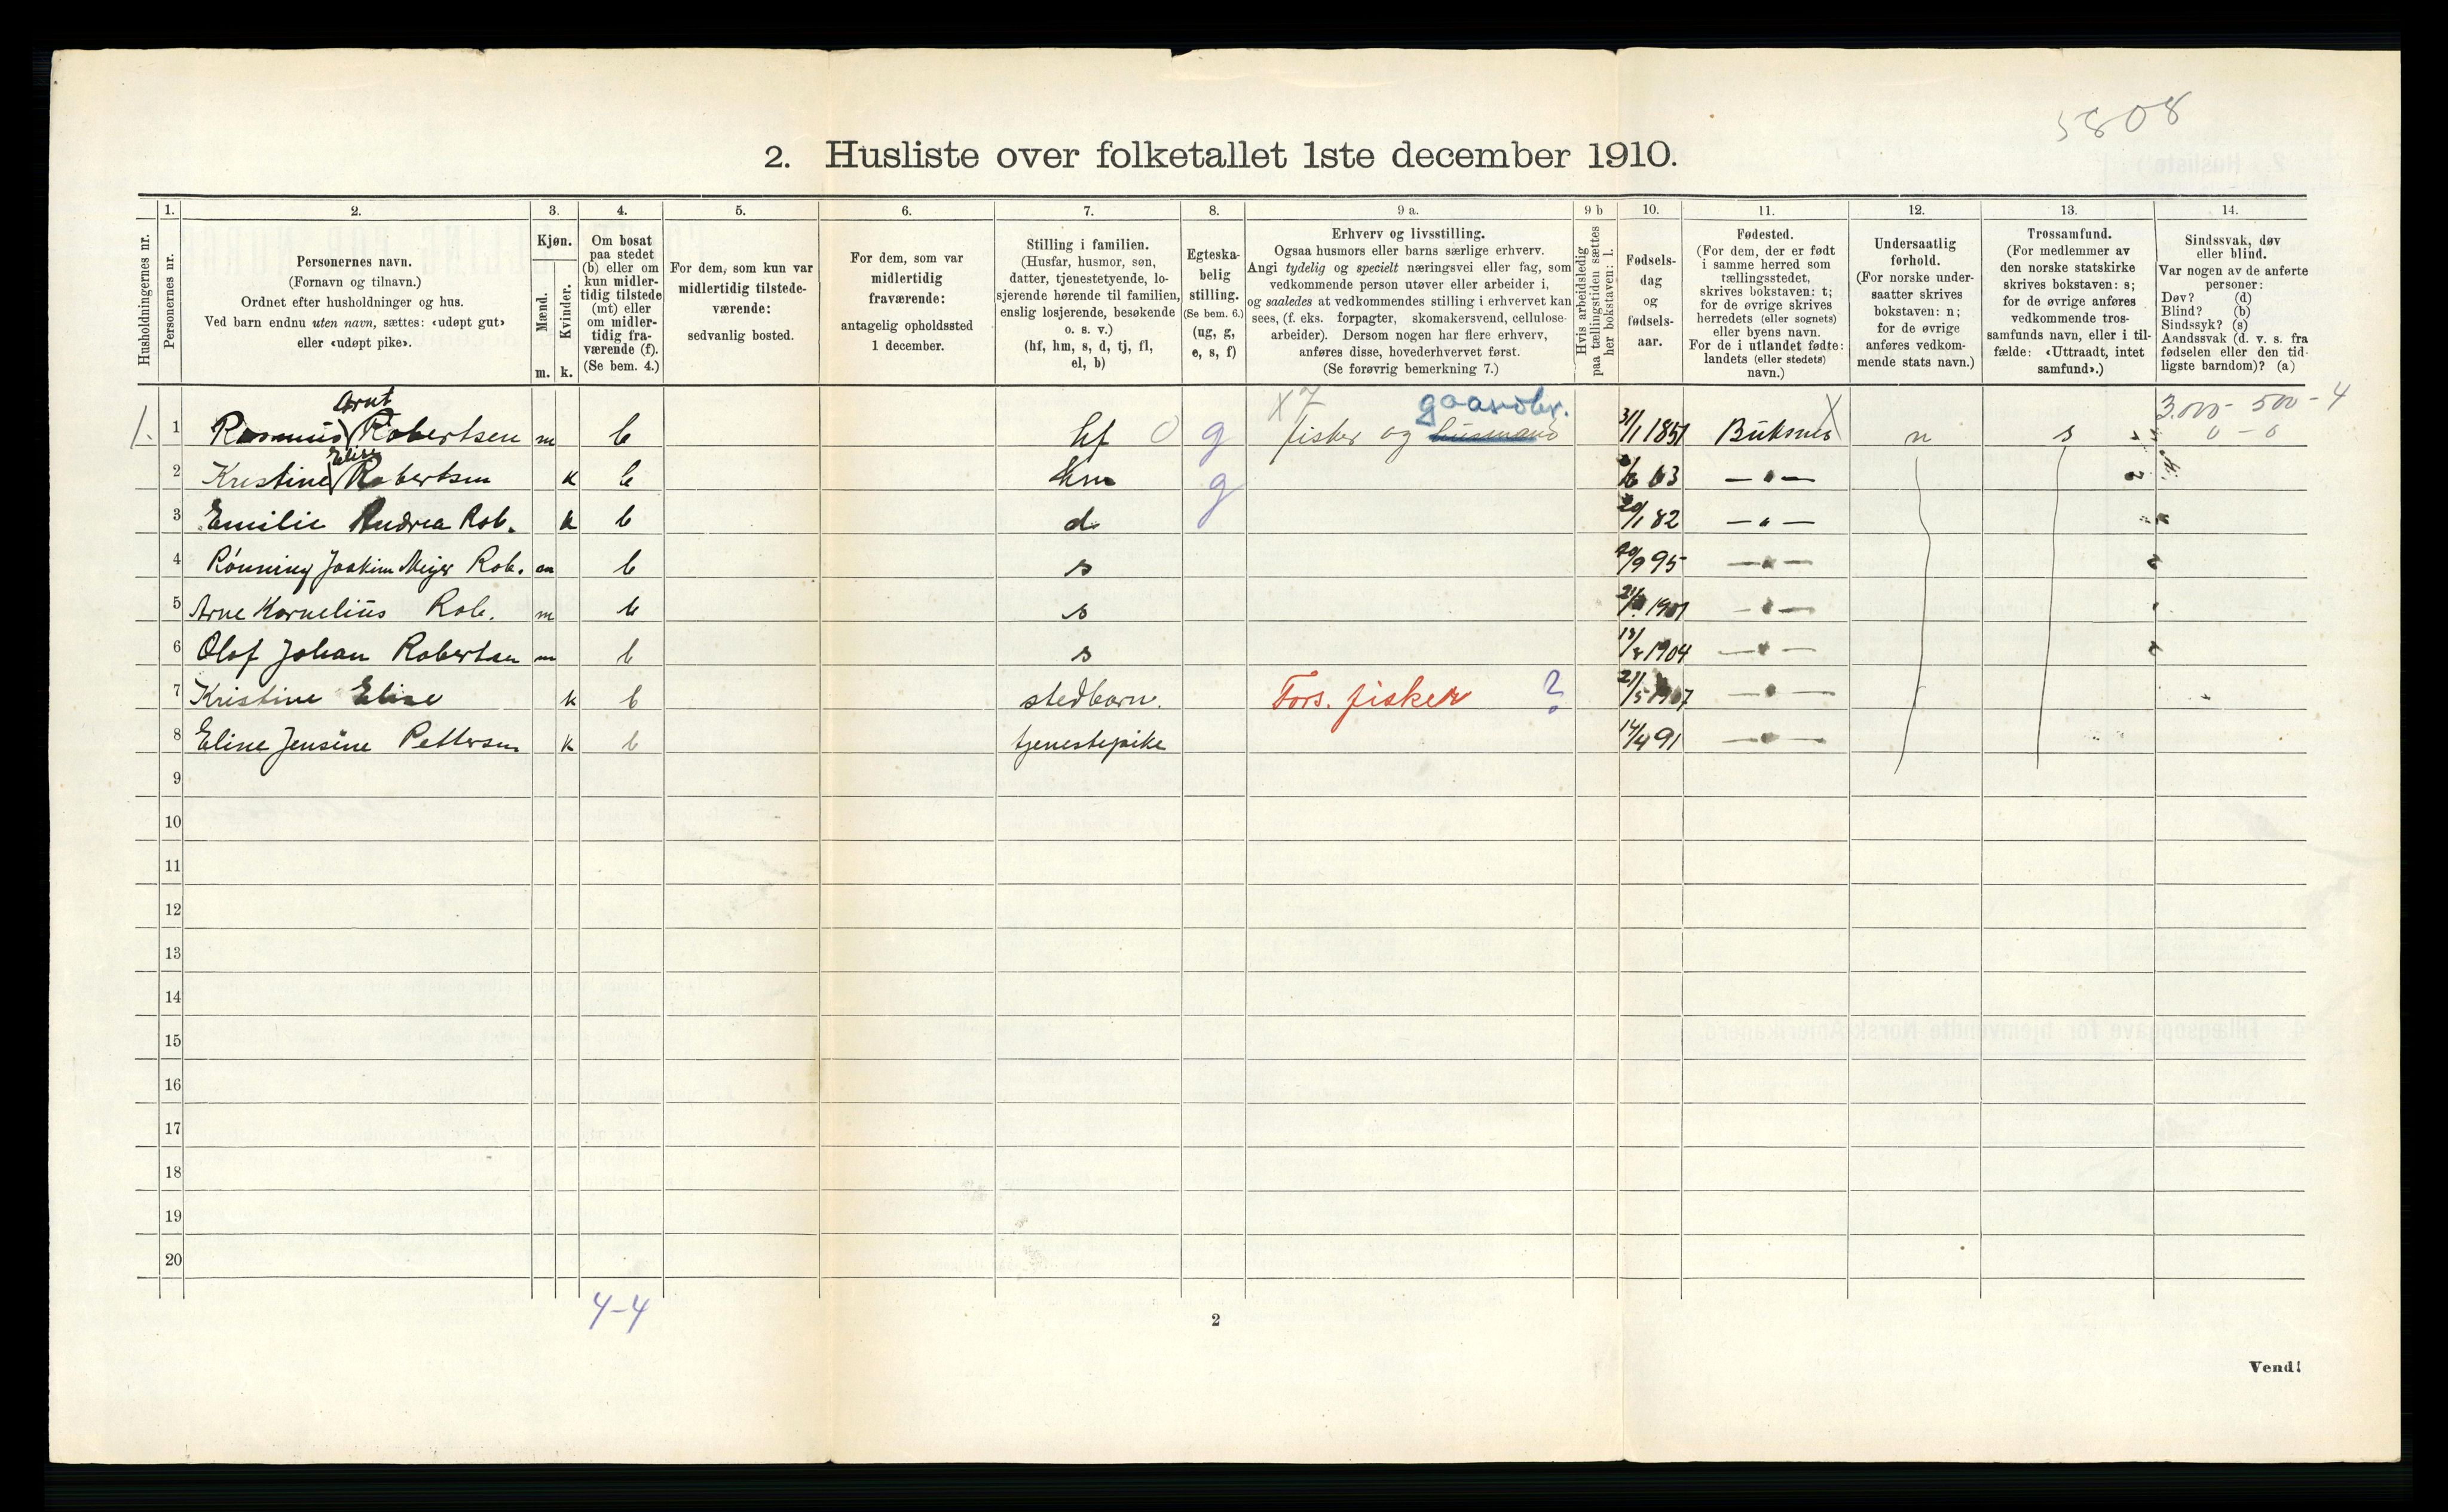 5808
2. Husliste over folketallet 1ste december 1910.
Husholdningernes nr.
1.
Personernes nr.
2.
Personernes navn.
(Fornavn og tilnavn.)
Ordnet efter husholdninger og hus.
Ved barn endnu uten navn, sættes: «udøpt gut»
eller «udøpt pike».
3.
Kjøn.
Mænd.
Kvinder.
m. k.
4.
Om bosat
paa stedet
(b) eller om
kun midler-
tidig tilstede
(mt) eller
om midler-
tidig fra-
værende (f).
(Se bem. 4.)
5.
For dem, som kun var
midlertidig tilstede-
værende:
sedvanlig bosted.
6.
For dem, som var
midlertidig
fraværende:
antagelig opholdssted
1 december.
7.
Stilling i familien.
(Husfar, husmor, søn,
datter, tjenestetyende, lo-
sjerende hørende til familien,
enslig losjerende, besøkende
o. s. v.)
(hf, hm, s, d, tj, fl,
el, b)
8.
Egteska-
belig
stilling.
(Se bem. 6.)
(ug, g,
e, s, f)
9 a.
Erhverv og livsstilling.
Ogsaa husmors eller barns særlige erhverv.
Angi tydelig og specielt næringsvei eller fag, som
vedkommende person utøver eller arbeider i,
og saaledes at vedkommendes stilling i erhvervet kan
sees, (f. eks. forpagter, skomakersvend, cellulose-
arbeider). Dersom nogen har flere erhverv,
anføres disse, hovederhvervet først.
(Se forøvrig bemerkning 7.)
9 b
Hvis arbeidsledig
paa tællingstiden sættes
her bokstaven: l.
10.
Fødsels-
dag
og
fødsels-
aar.
11.
Fødested.
(For dem, der er født
i samme herred som
tællingsstedet,
skrives bokstaven: t;
for de øvrige skrives
herredets (eller sognets)
eller byens navn.
For de i utlandet fødte:
landets (eller stedets)
navn.)
12.
Undersaatlig
forhold.
(For norske under-
saatter skrives
bokstaven: n;
for de øvrige
anføres vedkom-
mende stats navn.)
13.
Trossamfund.
(For medlemmer av
den norske statskirke
skrives bokstaven: s;
for de øvrige anføres
vedkommende tros-
samfunds navn, eller i til-
fælde: «Uttraadt, intet
samfund».)
14.
Sindssvak, døv
eller blind.
Var nogen av de anførte
personer:
Døv? (d)
Blind? (b)
Sindssyk? (s)
Aandssvak (d. v. s. fra
fødselen eller den tid-
ligste barndom)? (a)
Arnt x7 gaardbr. 3.000 - 500 - 4
1. 1 Rasmus Robertsen m b hf 0 g fisker og husmand 3/1 1851 Buksnes X n s 0 - 0
Elise
2 Kristine Robertsen k b hm g 63 — " —
3 Emilie Andrea Rob. k b d 20/1 82 — " —
4 Rönning Joakim Meyer Rob. m b s 9 95 — " —
5 Arne Kornelius Rob. m b s 1901 — " —
6 Olaf Johan Robertsen m b s 1904 — " —
7 Kristine Elise k b stedbarn. Fors. fisker ? 21/5 1907 — " —
8 Eline Jensine Pettersen k b tjenestepike 14/4 91 — " —
9
10
11
12
13
14
15
16
17
18
19
20
4-4
2
Vend!